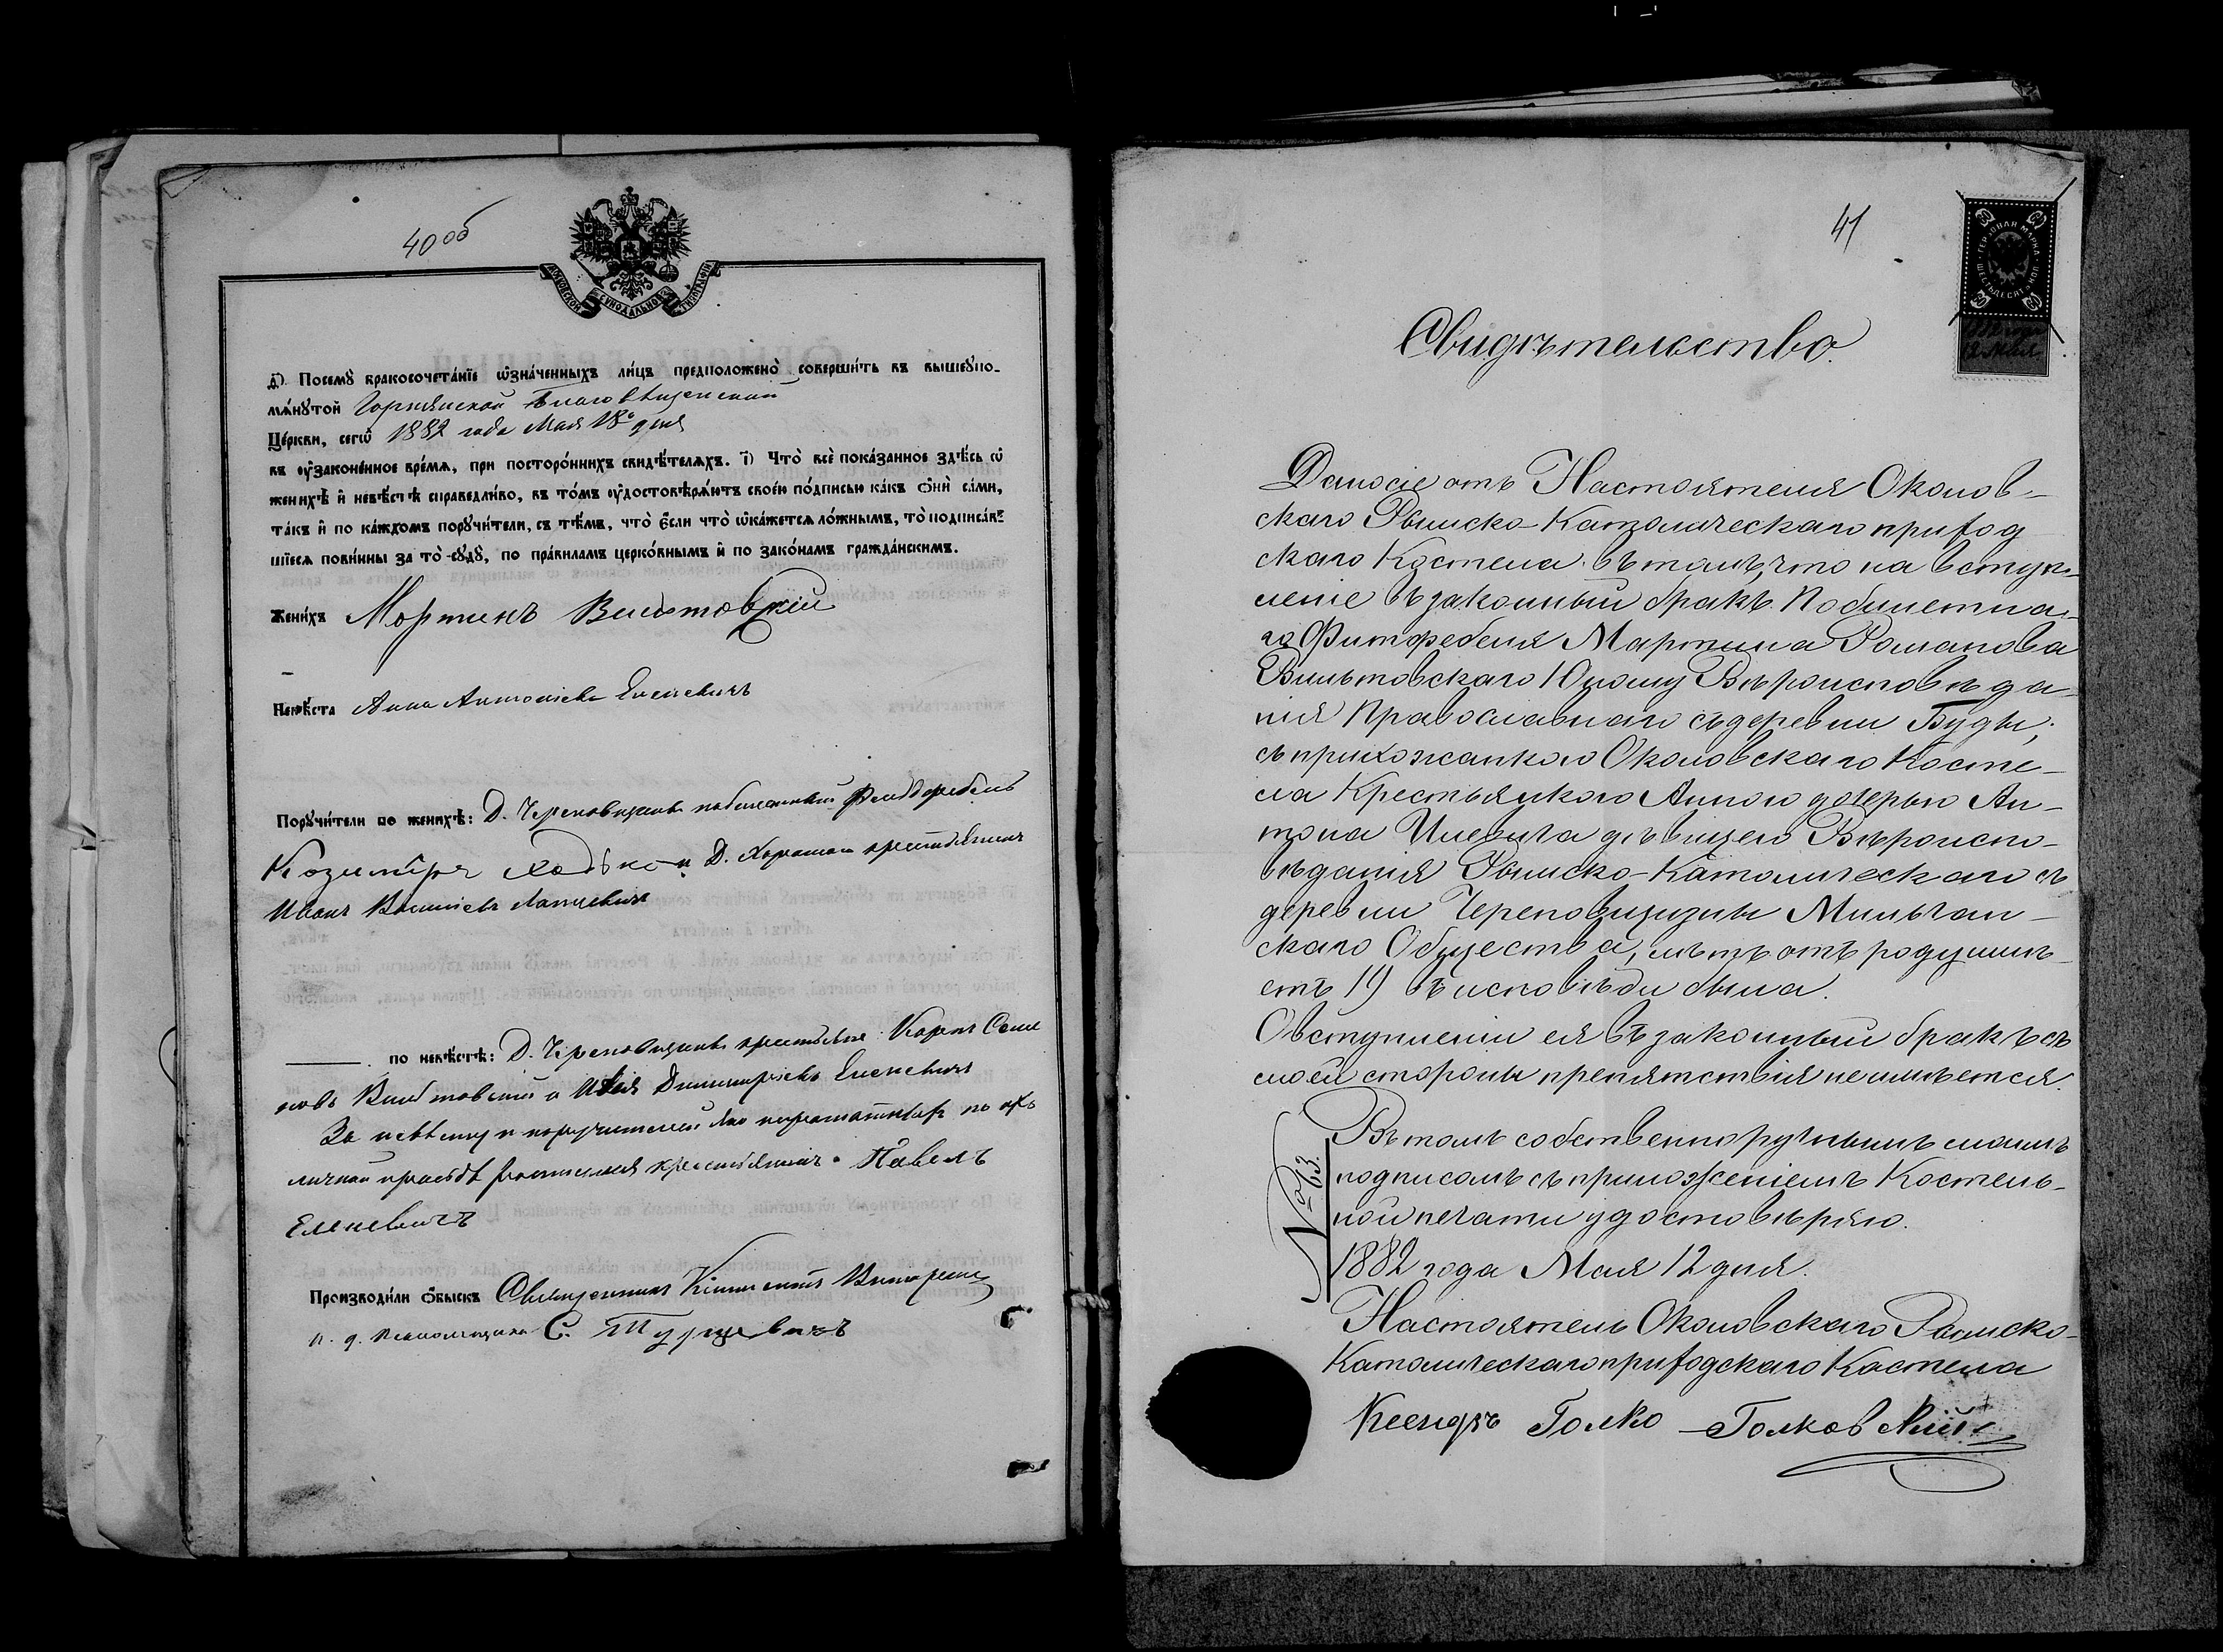 40об
МОСКОВСКОЙ СѴНОДАЛЬНОЙ ТИПОГРАФІИ
д҃) Посемꙋ̀ бракосочета́нїе ѡ҆зна́ченныхъ ли́цъ предположено̀ соверши́ть въ вышеꙋпо-
мѧ́нꙋтой Горнянской Благовѣщенской
Це́ркви, сегѡ̀ 1882 года Мая 18го дня
въ ᲂу҆законе́нное вре́мѧ, при посторо́ннихъ свидѣ́телѧхъ. і҃) Что̀ всѐ пока́занное здѣ́сь ѡ҆
женихѣ̀ и҆ невѣ́стѣ справедли́во, въ то́мъ ᲂу҆достовѣрѧ́ютъ свое́ю по́дписью ка́къ ѻ҆нѝ са́ми,
та́къ и҆ по ка́ждомъ порꙋчи́тели, съ тѣ́мъ, что̀ є҆́сли что̀ ѡ҆ка́жетсѧ ло́жнымъ, то̀ подписа́в-
шїесѧ пови́нны за то̀ сꙋдꙋ̀, по пра́виламъ церко́внымъ и҆ по зако́намъ гражда́нскимъ.
Жени́хъ Мортинъ Вильтовский
Невѣ́ста Анна Антоніева Еленевичъ
Порꙋчи́тели по женихѣ̀: Д. Череповщины побилетный Фельдфебель
Козимиръ Ходько и Д. крестьянинъ
Иванъ Лапцевичъ
по невѣ́стѣ: Д. Череповщины крестьяне Карпъ Семе
новъ Вильтовский и Илья Димитріевъ Еленевичъ
За невѣсту и поручителей по ихъ
личной просьбѣ росписался крестьянинъ Павелъ
Еленевичъ
Производи́ли ѻ҆́быскъ Священникъ
и. д. псаломщика С. Турцевичъ
41
ГЕРБОВАЯ МАРКА
ШЕСТЬДЕСЯТ КОП.
60
Свидѣтельство.
Дано сіе отъ Настоятеля Околов-
скаго Рымско-Католическаго приход
скаго Костела въ томъ, что на вступ-
леніе въ законный бракъ Побилетна-
го Фитфебеля Мартина Романова
Вильтовскаго Юношу Вѣроисповѣда-
нія Православнаго съ деревни Буды,
съ прихожанкою Околовскаго Косте-
ла Крестьянкою Анною дочерью Ан-
тона Илевича дѣвицею Вѣроиспо-
вѣданія Рымско-Католическаго съ
деревни Череповщизны Мильчан-
скаго Общества, лѣтъ отъ роду имѣ-
етъ 19 въ исповѣди была.
О вступленіи ея въ законный бракъ съ
моей стороны препятствія не имѣется.
Въ томъ собственноручнымъ моимъ
подписомъ съ приложеніемъ Костель-
ной печати удостовѣряю.
1882 года Мая 12 дня.
Настоятель Околовскаго Рымско-
Католическаго приходскаго Костела
Ксендзъ Голко-Голковский